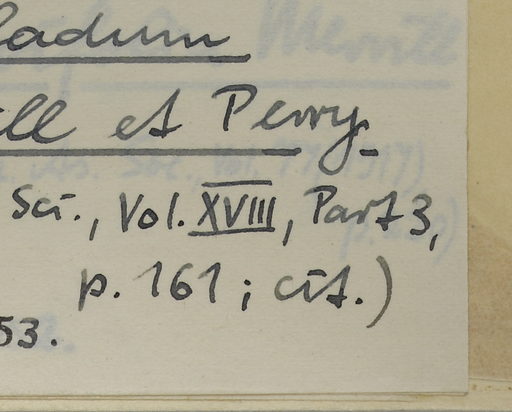 ladum
ll et Perry
Sci., Vol. XVIII, Part 3,
p. 161; cit.)
53.